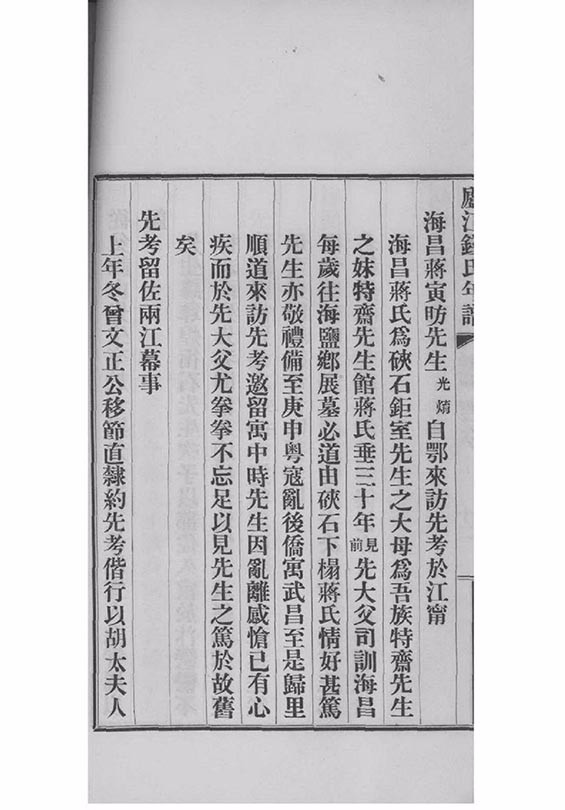 廬江錢氏年譜
海昌蔣寅昉先生光焴自鄂來訪先考於江甯
海昌蔣氏爲硤石鉅室先生之大母爲吾族特齋先生
之妹特齋先生館蔣氏垂三十年見前先大父司訓海昌
每歲往海鹽鄉展墓必道由硤石下榻蔣氏情好甚篤
先生亦敬禮備至庚申粤寇亂後僑寓武昌至是歸里
順道來訪先考邀留寓中時先生因亂離感愴已有心
疾而於先大父尤拳拳不忘足以見先生之篤於故舊
矣
先考留佐兩江幕事
上年冬曾文正公移節直隸約先考偕行以胡太夫人